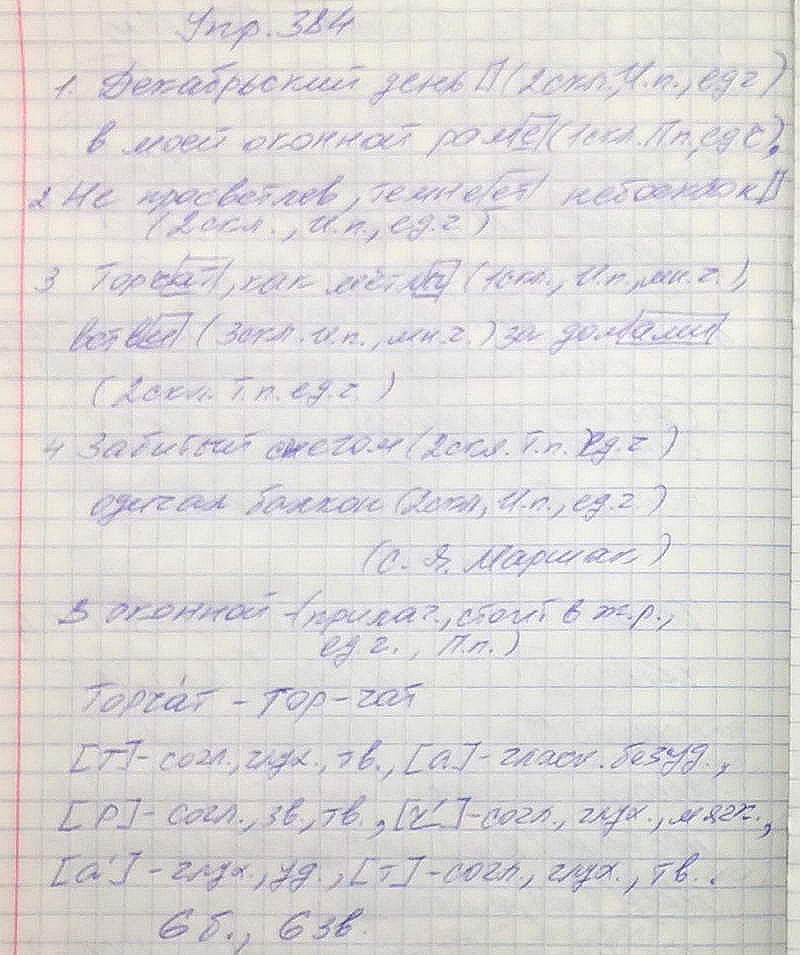 Упр. 384
1. Декабрьский день (2скл., И.п., ед.ч)
в моей оконной раме (1скл. П.п, ед.ч).
2 Не просветлев, темнеет небосклон
(2скл., И.п., ед.ч)
3 Торчат, как мётлы (1скл., И.п., мн.ч.),
ветви (3скл. И.п., мн.ч.) за домами
(2скл. Т.п. ед.ч.)
4 Забитый снегом (2скл. Т.п. ед.ч)
одичал балкон (2скл, И.п., ед.ч.)
(С. Я. Маршак)
В оконной - (прилаг., стоит в ж.р.,
ед ч., П.п.)
Торча́т - тор-чат
[Т]- согл., глух., тв., [а]- гласн. безуд.,
[Р]- согл., зв., тв., [ч']- согл., глух., мягк.,
[а'] - глух., уд., [т] - согл., глух., тв..
6 б., 6 зв.